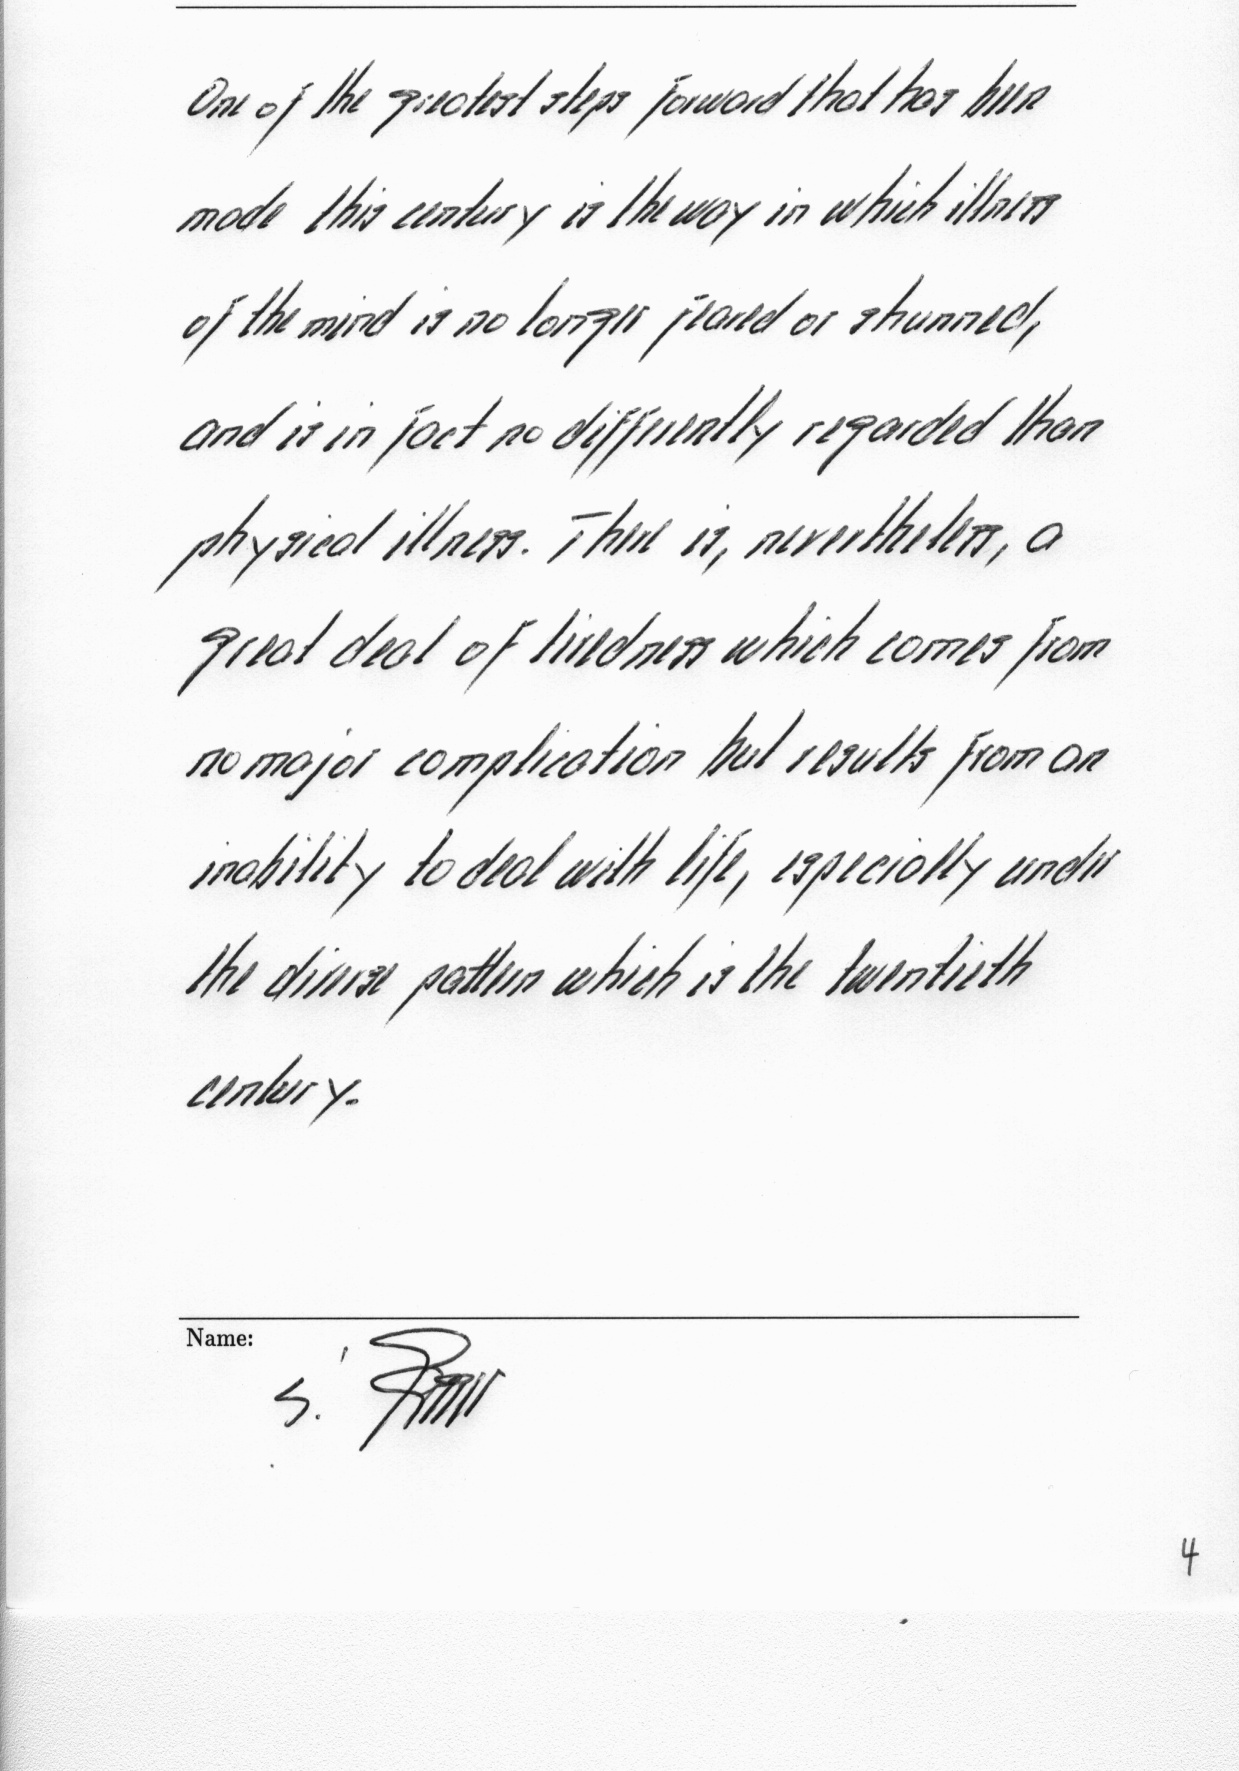 One of the greatest steps forward that has been
made this century is the way in which illness
of the mind is no longer feared or shunned,
and is in fact no differently regarded than
physical illness. There is, nevertheless, a
great deal of tiredness which comes from
no major complication but results from an
inability to deal with life, especially under
the diverse pattern which is the twentieth
century.
Name:
S.
4